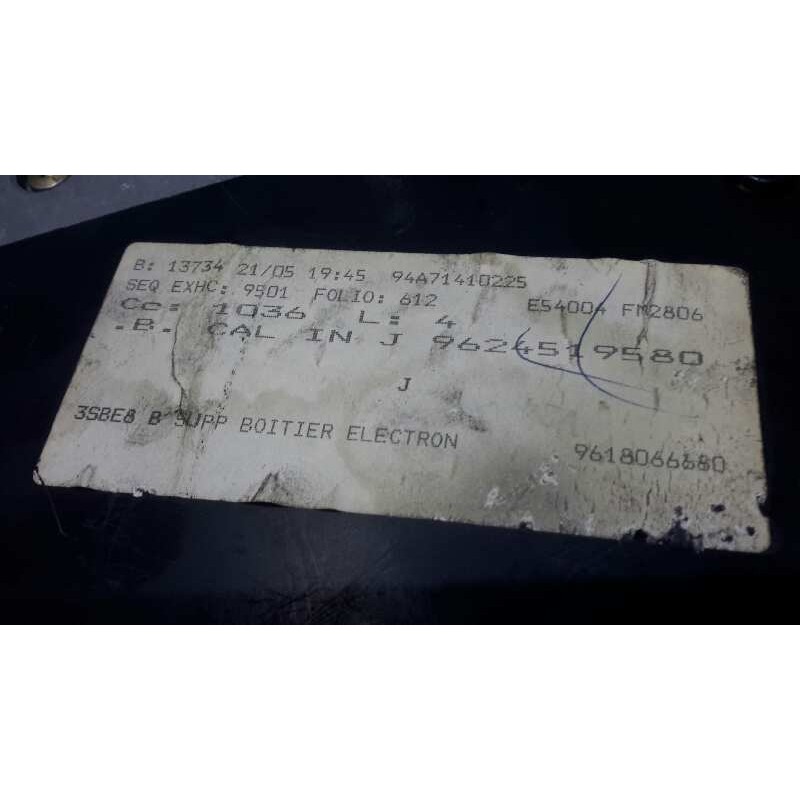 B: 13734 21/05 19:45 94A71410225
SEQ EXHC: 9501 FOLIO: 612 E54004 FM2806
Ce: 1036 L: 4
.B. CAL IN J 9624519580
J
3SBE8 B SUPP BOITIER ELECTRON 9618066680